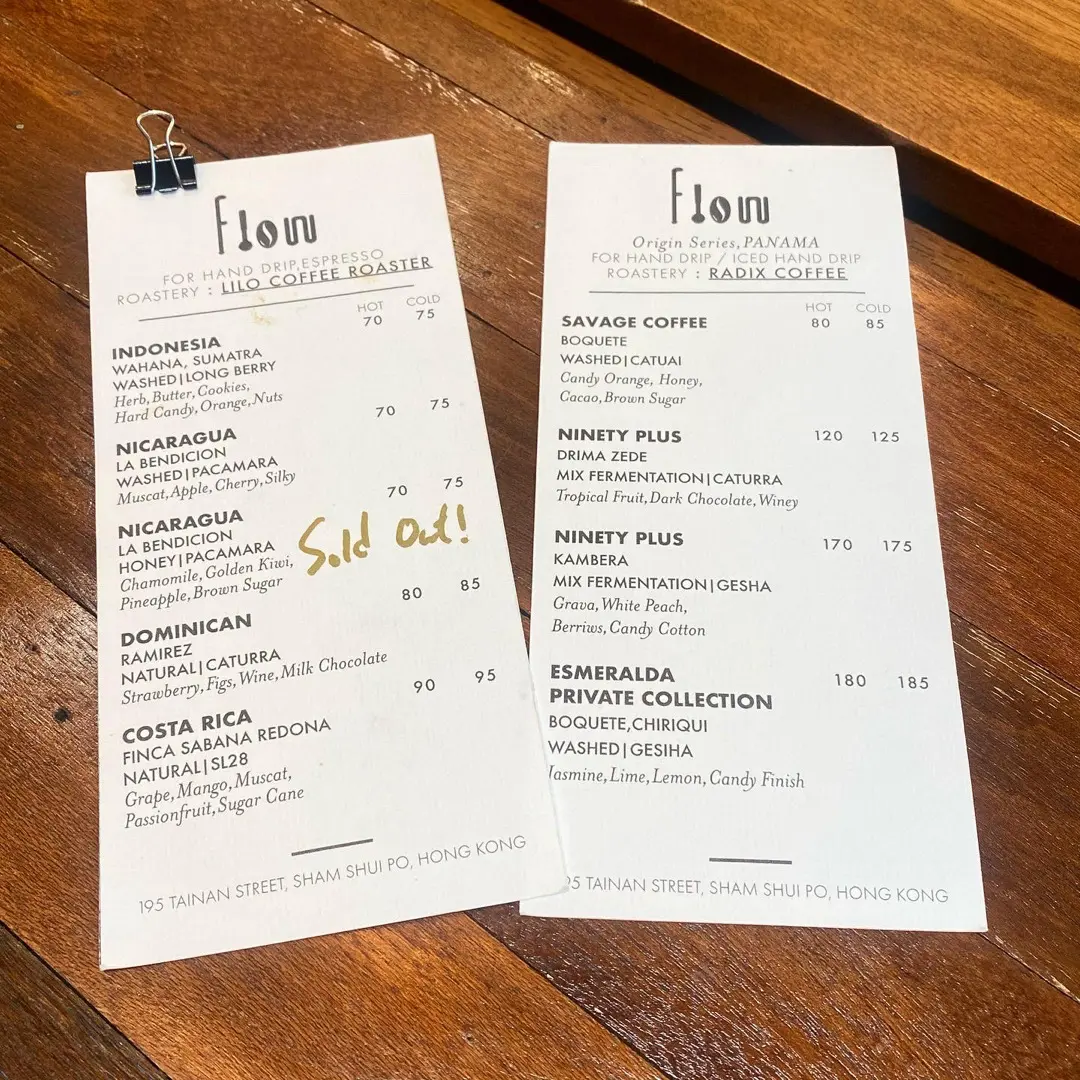 flow
FOR HAND DRIP,ESPRESSO
ROASTERY : LILO COFFEE ROASTER
HOT COLD
70 75
INDONESIA
WAHANA, SUMATRA
WASHED|LONG BERRY
Herb, Butter, Cookies,
Hard Candy, Orange, Nuts
70 75
NICARAGUA
LA BENDICION
WASHED|PACAMARA
Muscat, Apple, Cherry, Silky
70 75
NICARAGUA
LA BENDICION
HONEY|PACAMARA
Chamomile, Golden Kiwi,
Pineapple, Brown Sugar
Sold Out!
80 85
DOMINICAN
RAMIREZ
NATURAL|CATURRA
Strawberry, Figs, Wine, Milk Chocolate
90 95
COSTA RICA
FINCA SABANA REDONA
NATURAL|SL28
Grape, Mango, Muscat,
Passionfruit, Sugar Cane
195 TAINAN STREET, SHAM SHUI PO, HONG KONG
flow
Origin Series, PANAMA
FOR HAND DRIP / ICED HAND DRIP
ROASTERY : RADIX COFFEE
HOT COLD
SAVAGE COFFEE 80 85
BOQUETE
WASHED|CATUAI
Candy Orange, Honey,
Cacao, Brown Sugar
NINETY PLUS 120 125
DRIMA ZEDE
MIX FERMENTATION|CATURRA
Tropical Fruit, Dark Chocolate, Winey
NINETY PLUS 170 175
KAMBERA
MIX FERMENTATION|GESHA
Grava, White Peach,
Berriws, Candy Cotton
ESMERALDA 180 185
PRIVATE COLLECTION
BOQUETE,CHIRIQUI
WASHED|GESIHA
Jasmine, Lime, Lemon, Candy Finish
95 TAINAN STREET, SHAM SHUI PO, HONG KONG